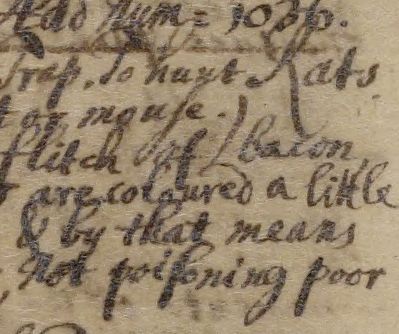 Add num = 1036.
Trap. to hunt Rats
or mouse.
flitch of bacon
are coloured a little
& by that means
not poisoning poor